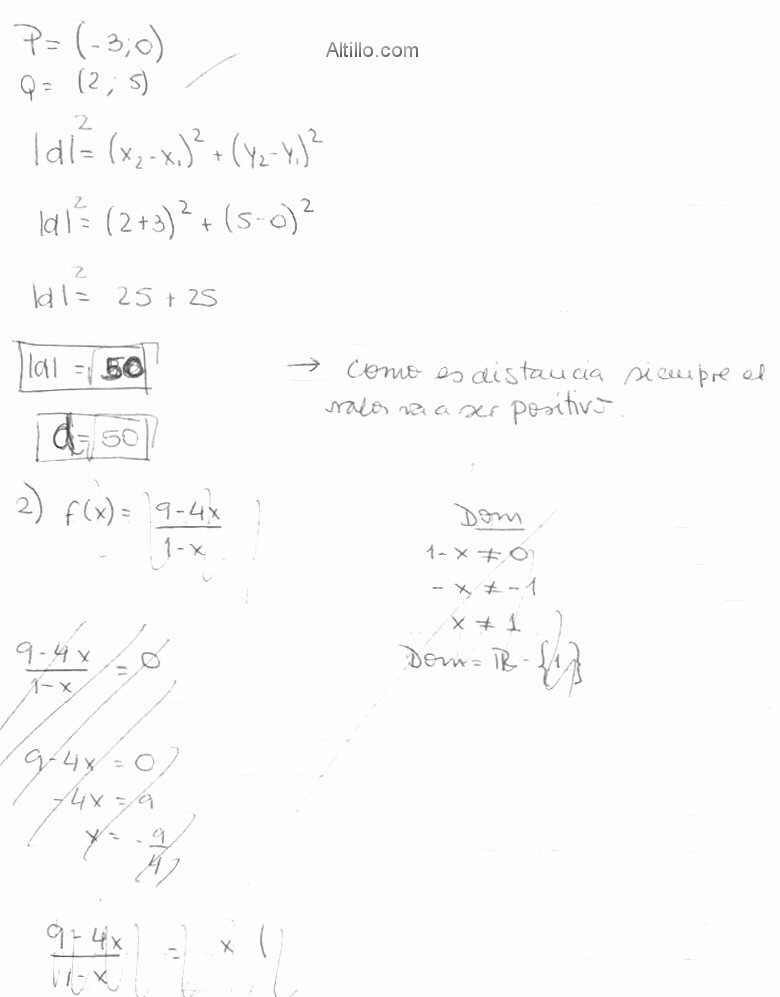 P = (-3;0)
Altillo.com
Q = (2; 5)
|d|² = (x₂-x₁)² + (y₂-y₁)²
|d|² = (2+3)² + (5-0)²
|d|² = 25 + 25
|d| = √50
→ como es distancia siempre el
valor va a ser positivo.
d = √50
2) f(x) = 9-4x / 1-x
Dom
1-x ≠ 0
-x ≠ -1
x ≠ 1
Dom = ℝ - {1}
9-4x / 1-x = 0
9-4x = 0
-4x = 9
x = -9/4
9-4x / 1-x = x (